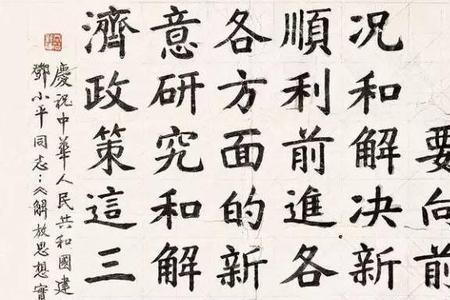 要向前
况和解决新
順利前進各
各方面的新
意研究和解
濟政策這三
慶祝中華人民共和國建
鄧小平同志：《解放思想實